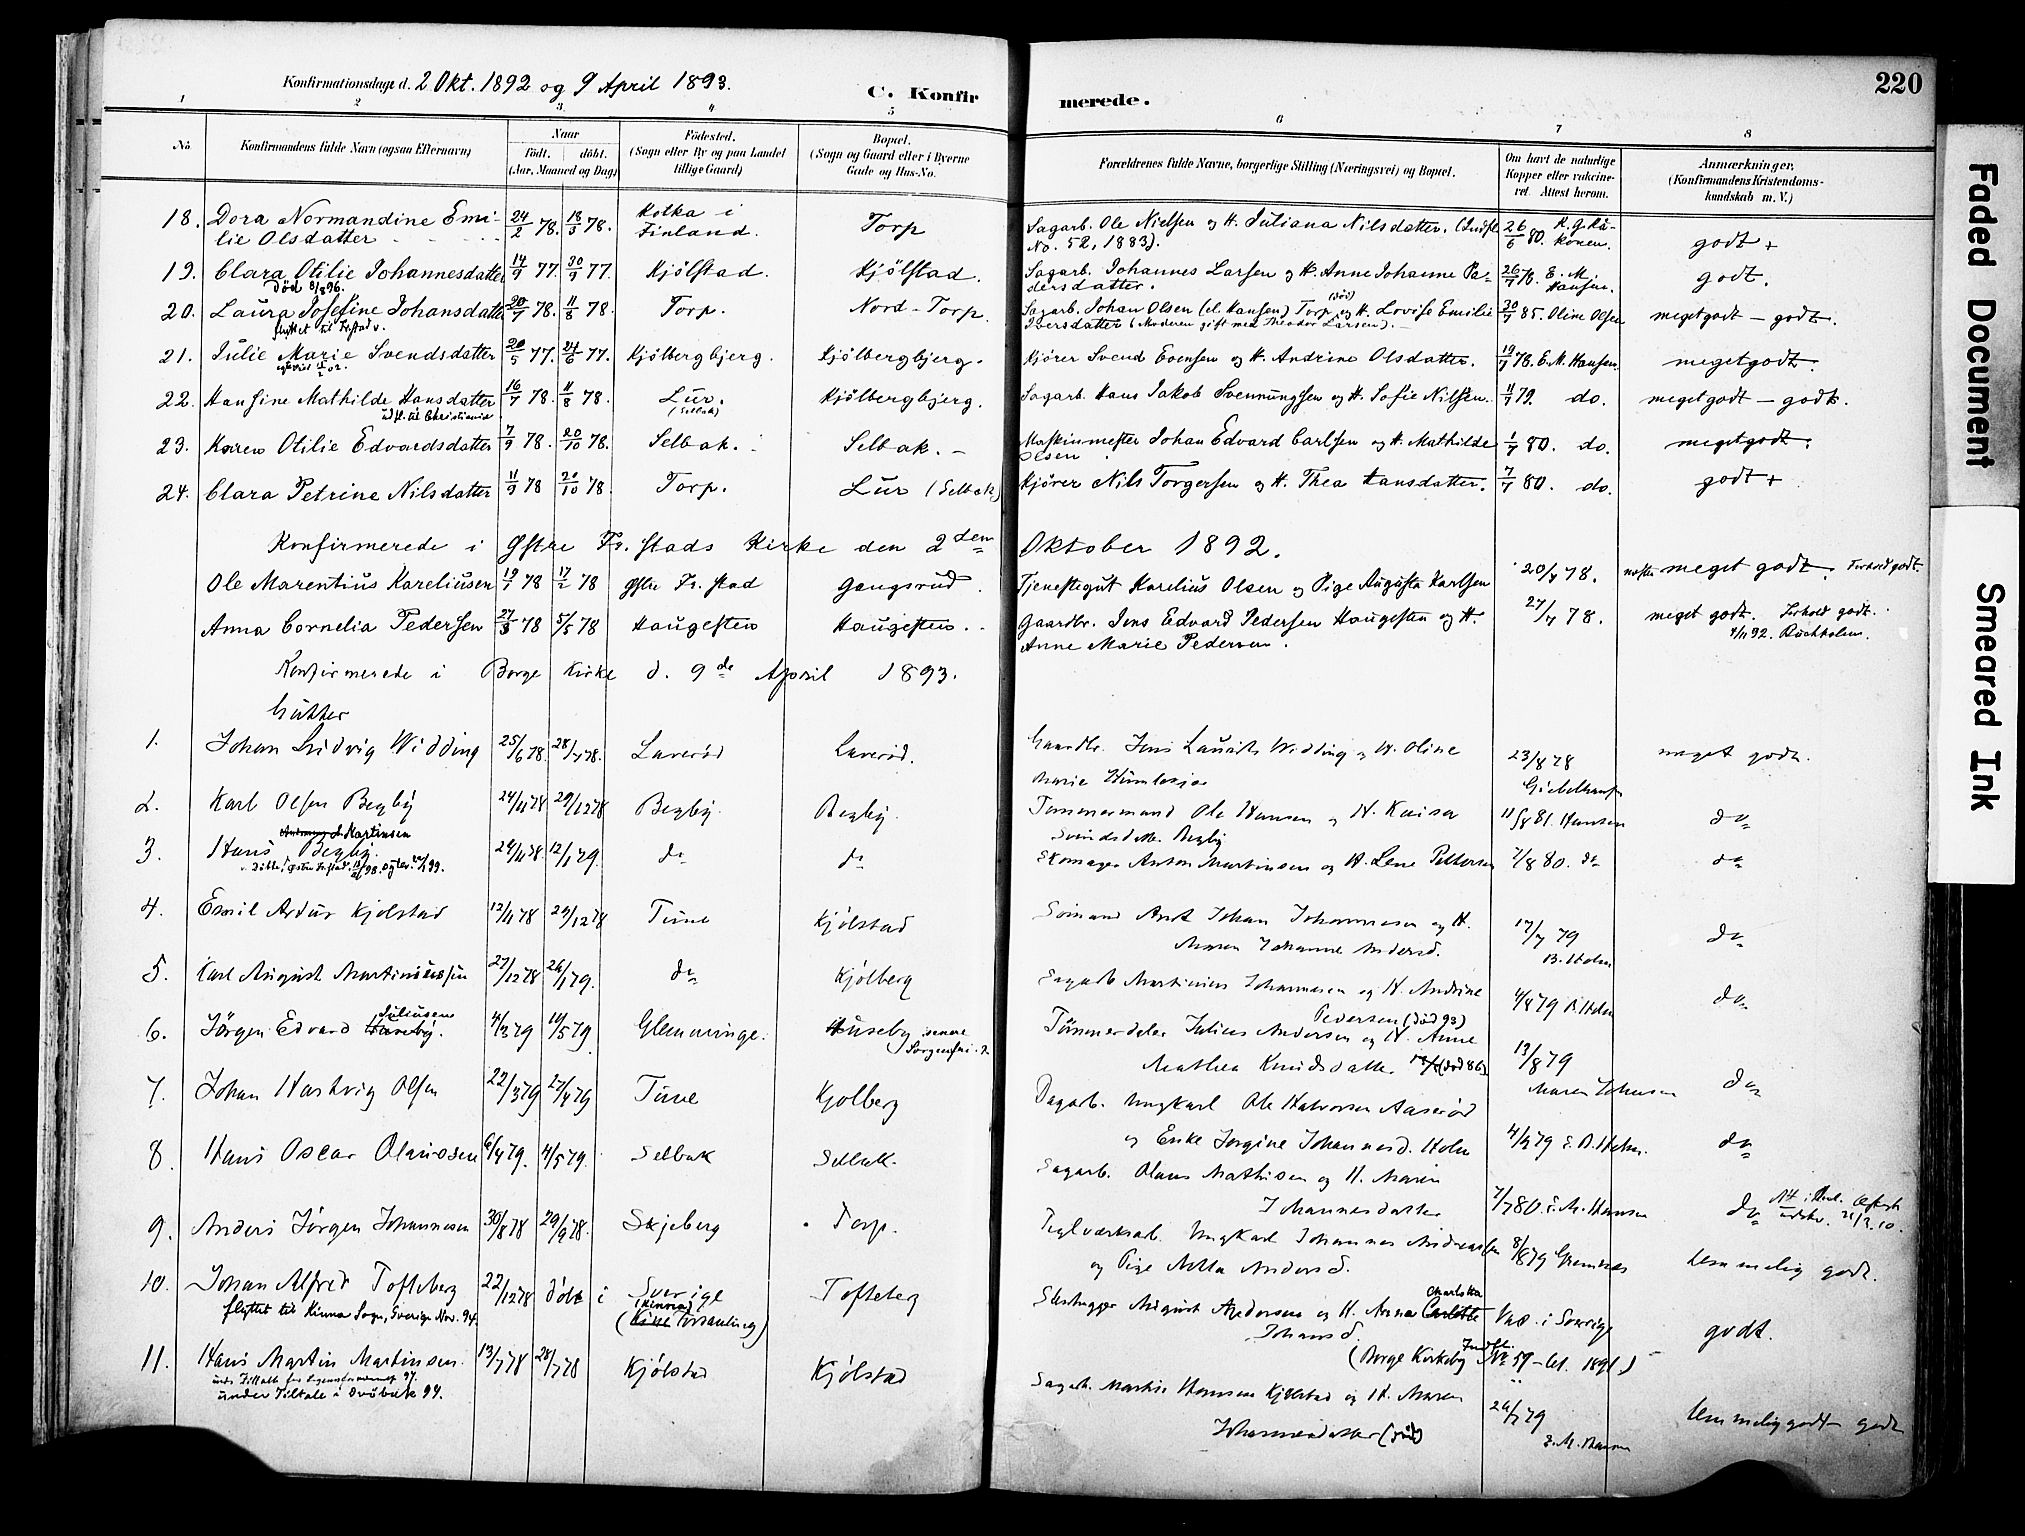 Konfirmationsdage d. 2 Okt. 1892 og 9 April 1893.
C. Konfirmerede.
220
1 2 3 4 5 6 7 8
No.
Konfirmandens fulde Navn (ogsaa Efternavn)
Naar
födt. döbt.
(Aar, Maaned og Dag)
Födested.
(Sogn eller By og paa Landet
tillige Gaard)
Bopæl.
(Sogn og Gaard eller i Byerne
Gade og Hus-No.
Forældrenes fulde Navne, borgerlige Stilling (Næringsvei) og Bopæl.
Om havt de naturlige
Kopper eller vaccineret. Attest herom.
Anmærkninger,
(Konfirmandens Kristendomskundskab m. V.)
18. Dora Normandine Emi- 24/2 78. 18/3 78. Kotka i Torp Sagarb. Ole Nielsen og H. Juliana Nilsdatter. (Indfl. 26/6 80.
lie Olsdatter Finland. No. 52, 1883). godt +
19. Clara Otilie Johannesdatter 14/9 77. 30/9 77. Kjölstad. Kjölstad. Sagarb. Johannes Larsen og H. Anne Johanne Pe- 26/7 78. E. M. Hansen. godt.
Död 8/8 96. dersdatter.
20. Laura Josefine Johansdatter 20/7 78. 11/8 78. Torp. Nord-Torp Sagarb. Johan Olsen (el. Hansen) Torp (död) og H. Lovise Emilie 30/7 85. Oline Olsen meget godt - godt.
flyttet til Frstad v. Iversdatter (Moderen gift med Theodor Larsen).
21. Julie Marie Svendsdatter 20/5 77. 24/6 77. Kjölbergbjerg. Kjölbergbjerg. Kjörer Svend Evensen og H. Andrine Olsdatter. 19/7 78. E. M. Hansen. meget godt.
22. Hansine Mathilde Hansdatter 16/7 78. 11/8 78. Lur. (Selbak) Kjölbergbjerg. Sagarb. Hans Jakob Svennungsen og H. Sofie Nilsen. 11/7 79. do. meget godt - godt.
udfl. til Christiania
23. Karen Otilie Edvardsdatter 7/9 78. 20/10 78. Selbak. Selbak. Maskinmester Johan Edvard Carlsen og H. Mathilde 1/7 80. do. meget godt.
Olsen
24. Clara Petrine Nilsdatter 11/9 78 20/10 78. Torp. Lur (Selbak) Kjörer Nils Torgersen og H. Thea Hansdatter. 7/7 80. do. godt +
Konfirmerede i Østre Fr.stads Kirke den 2den Oktober 1892.
Ole Marentius Kareliusen 19/1 78 17/2 78 Østre Fr.stad Gangsrud. Tjenestegut Karelius Olsen og Pige Augusta Karlsen 20/7 78. meget godt. Forhold godt
Anna Cornelia Pedersen 27/3 78 5/5 78 Haugesten Haugesten. Gaardbr. Jens Edvard Pedersen Haugesten og H. 27/7 78. meget godt. Forhold godt.
Anne Marie Pedersen. 4/11 92. Buchholm.
Konfirmerede i Borge Kirke d. 9de April 1893.
Gutter
1. Johan Ludvig Widding 25/6 78 28/7 78. Laverød Laverød. Gaardbr. Jens Laurits Widding og H. Oline 23/8 78 meget godt.
Marie
2. Karl Olsen Begby 24/11 78 29/12 78 Begby. Begby. Tømmermand Ole Hansen og H. Kaisa 11/8 81. Hansen do
Svendsdatter Begby
Martinsen
3. Hans Begby. 24/11 78 12/1 79. do do Skomager Anton Martinsen og H. Lene Pettersen 7/8 80. do do
4. Emil Artur Kjølstad 12/11 78 29/12 78 Tune Kjölstad Sømand Johan Johannesen og H. 17/7 79 do
Maren Johanne Andersd. B. Holm
5. Karl August Martiniussen 27/12 78 26/1 79. do Kjölberg Sagarb Martinius Johannesen og H. Andrine 4/8 79 B. Holm do
Pedersen (død 93)
Juliusen
6. Jörgen Edvard Huseby. 4/3 79 10/5 79 Glemminge. Huseby senere Tömmerdeler Julius Andersen og H. Anne 13/8 79
Sorgenfri Mathea Knudsdatter (død 86) Maren Johnsen do
7. Johan Hartvig Olsen 22/3 79 27/4 79 Tune Kjölberg Dagarb. Ungkarl Ole Halvorsen Aaserød
og Enke Jørgine Johannesd. Holm 4/9 79 B. Holm. do
8. Hans Oscar Olaussen 6/4 79. 4/5 79. Selbak Selbak. Sagarb. Olaus Mathisen og H. Maren
Johannesdatter 7/7 80. E. M. Hansen do
9. Anders Jörgen Johannesen 30/8 78 29/9 78. Skjeberg Torp. Teglværksarb. Ungkarl Johannes Andreassen 8/8 79
og Pige Andersd. temmelig godt.
10. Johan Alfred Tofteberg 22/12 78 döbt i Sverige Tofteberg August Andersen og H. Anna Charlotta Vac. i Sverige godt.
flyttet til Kinna Sogn, Sverige Nov. 94. (Kinna Forsamling) Johansd.
(Borge Kirkebog Indfl. No 59 1891)
11. Hans Martin Martinsen 13/7 78 28/7 78 Kjölstad Kjölstad Sagarb. Martin Hansen Kjølstad og H. Maren 24/7 79 temmelig godt - godt
under Tiltale i Dröbak 99. Johannesdatter (död) E. M. Hansen
Faded Document
Smeared Ink